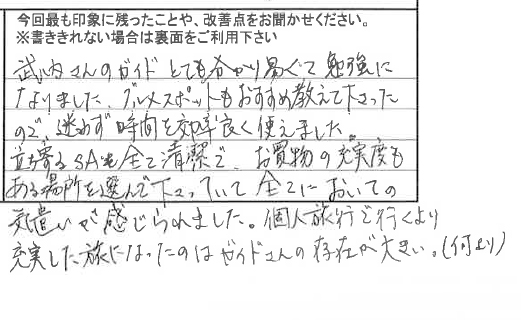 今回最も印象に残ったことや、改善点をお聞かせください。
※書ききれない場合は裏面をご利用下さい
武内さんのガイドとても分かり易くて勉強に
なりました。グルメスポットもおすすめ教えて下さった
ので、迷わず時間を効率良く使えました。
立ち寄るSAも全て清潔で、お買物の充実度も
ある場所を選んで下さっていて全てにおいての
気遣いが感じられました。個人旅行で行くより
充実した旅になったのはガイドさんの存在が大きい。(何より)